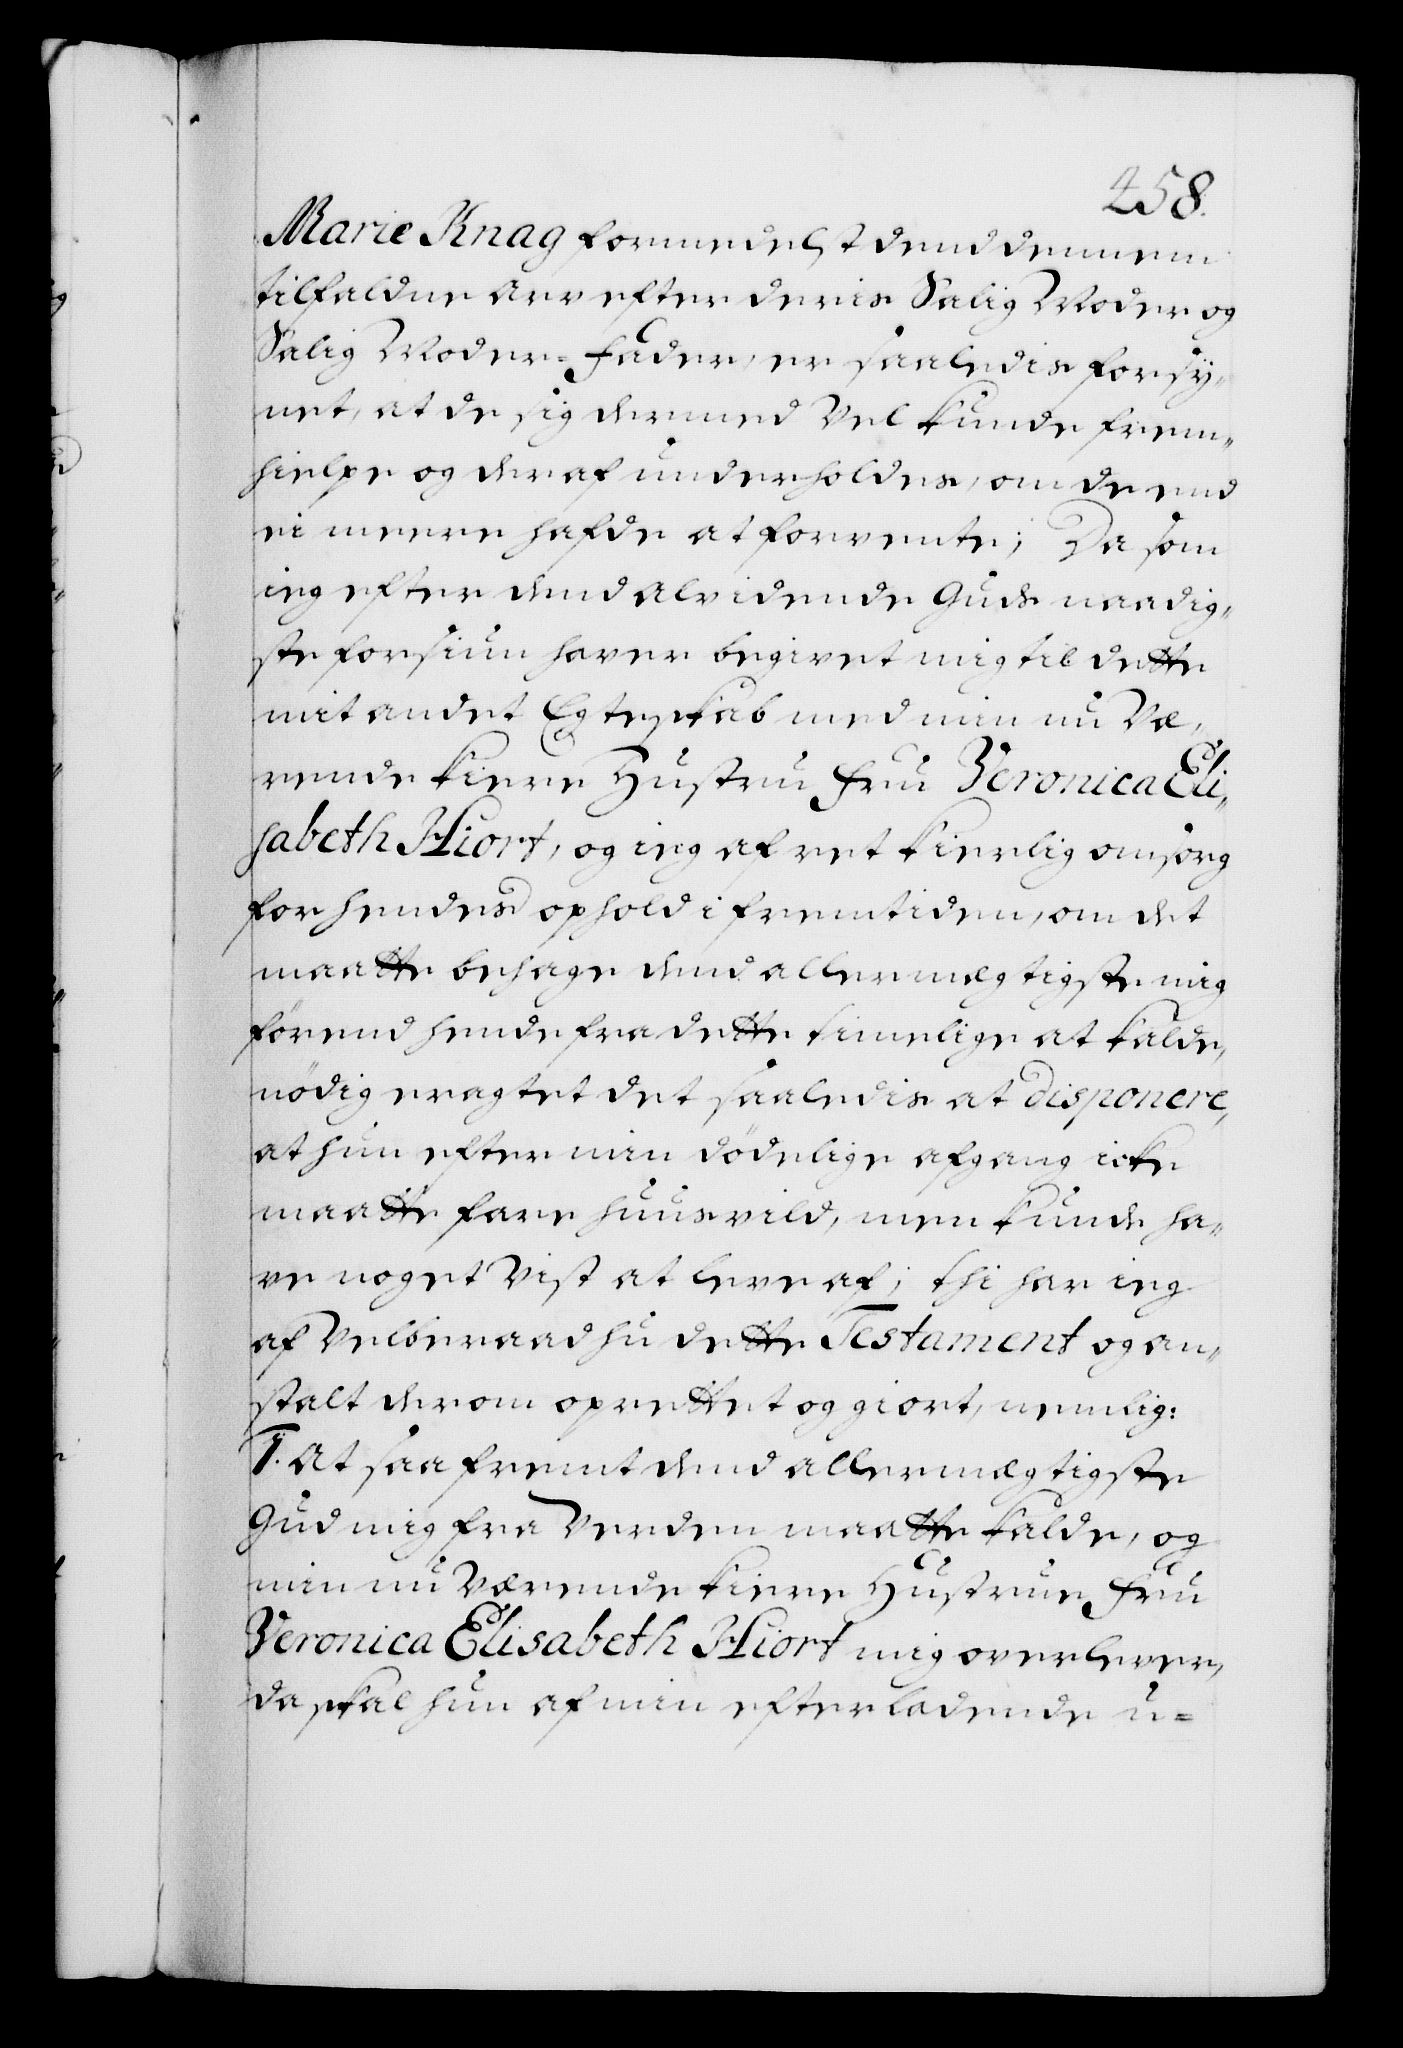 458.
Marie Knag formedelst dend dennem
tilfaldne Arv efter deris Salig Moder og
Salig Moder-Fader, er saaledis forsÿ-
net, at de sig dermed vel kunde frem-
hielpe og deraf underholdes, om de end
ei meere hafde at forvente; Da som
ieg efter dend Alvidende Guds naadig-
ste forsiun haver begivet mig til dette
mit andet Egteskab med min nu Væ-
rende kiere Hustru Fru Veronica Eli-
sabeth Hiort, og ieg af ret kierlig omsorg
for hendes ophold i fremtiden, om det
maatte behage dend allermægtigste mig
förend hende fra dette timelige at kalde,
nödig eragtet det saaledis at disponere,
at hun efter min dödelige afgang icke
maatte fare huusvild, men kunde ha-
ve noget vist at leve af; thi har ieg
af Velberaad hu dette Testament og an-
stalt derom oprettet og giort, nemlig:
1. At saafremt dend allermægtigste
Gud mig fra Verden maatte kalde, og
min nu Værende kiere Hustrue Fru
Veronica Elisabeth Hiort mig overlever,
da skal hun af min efterladende u-